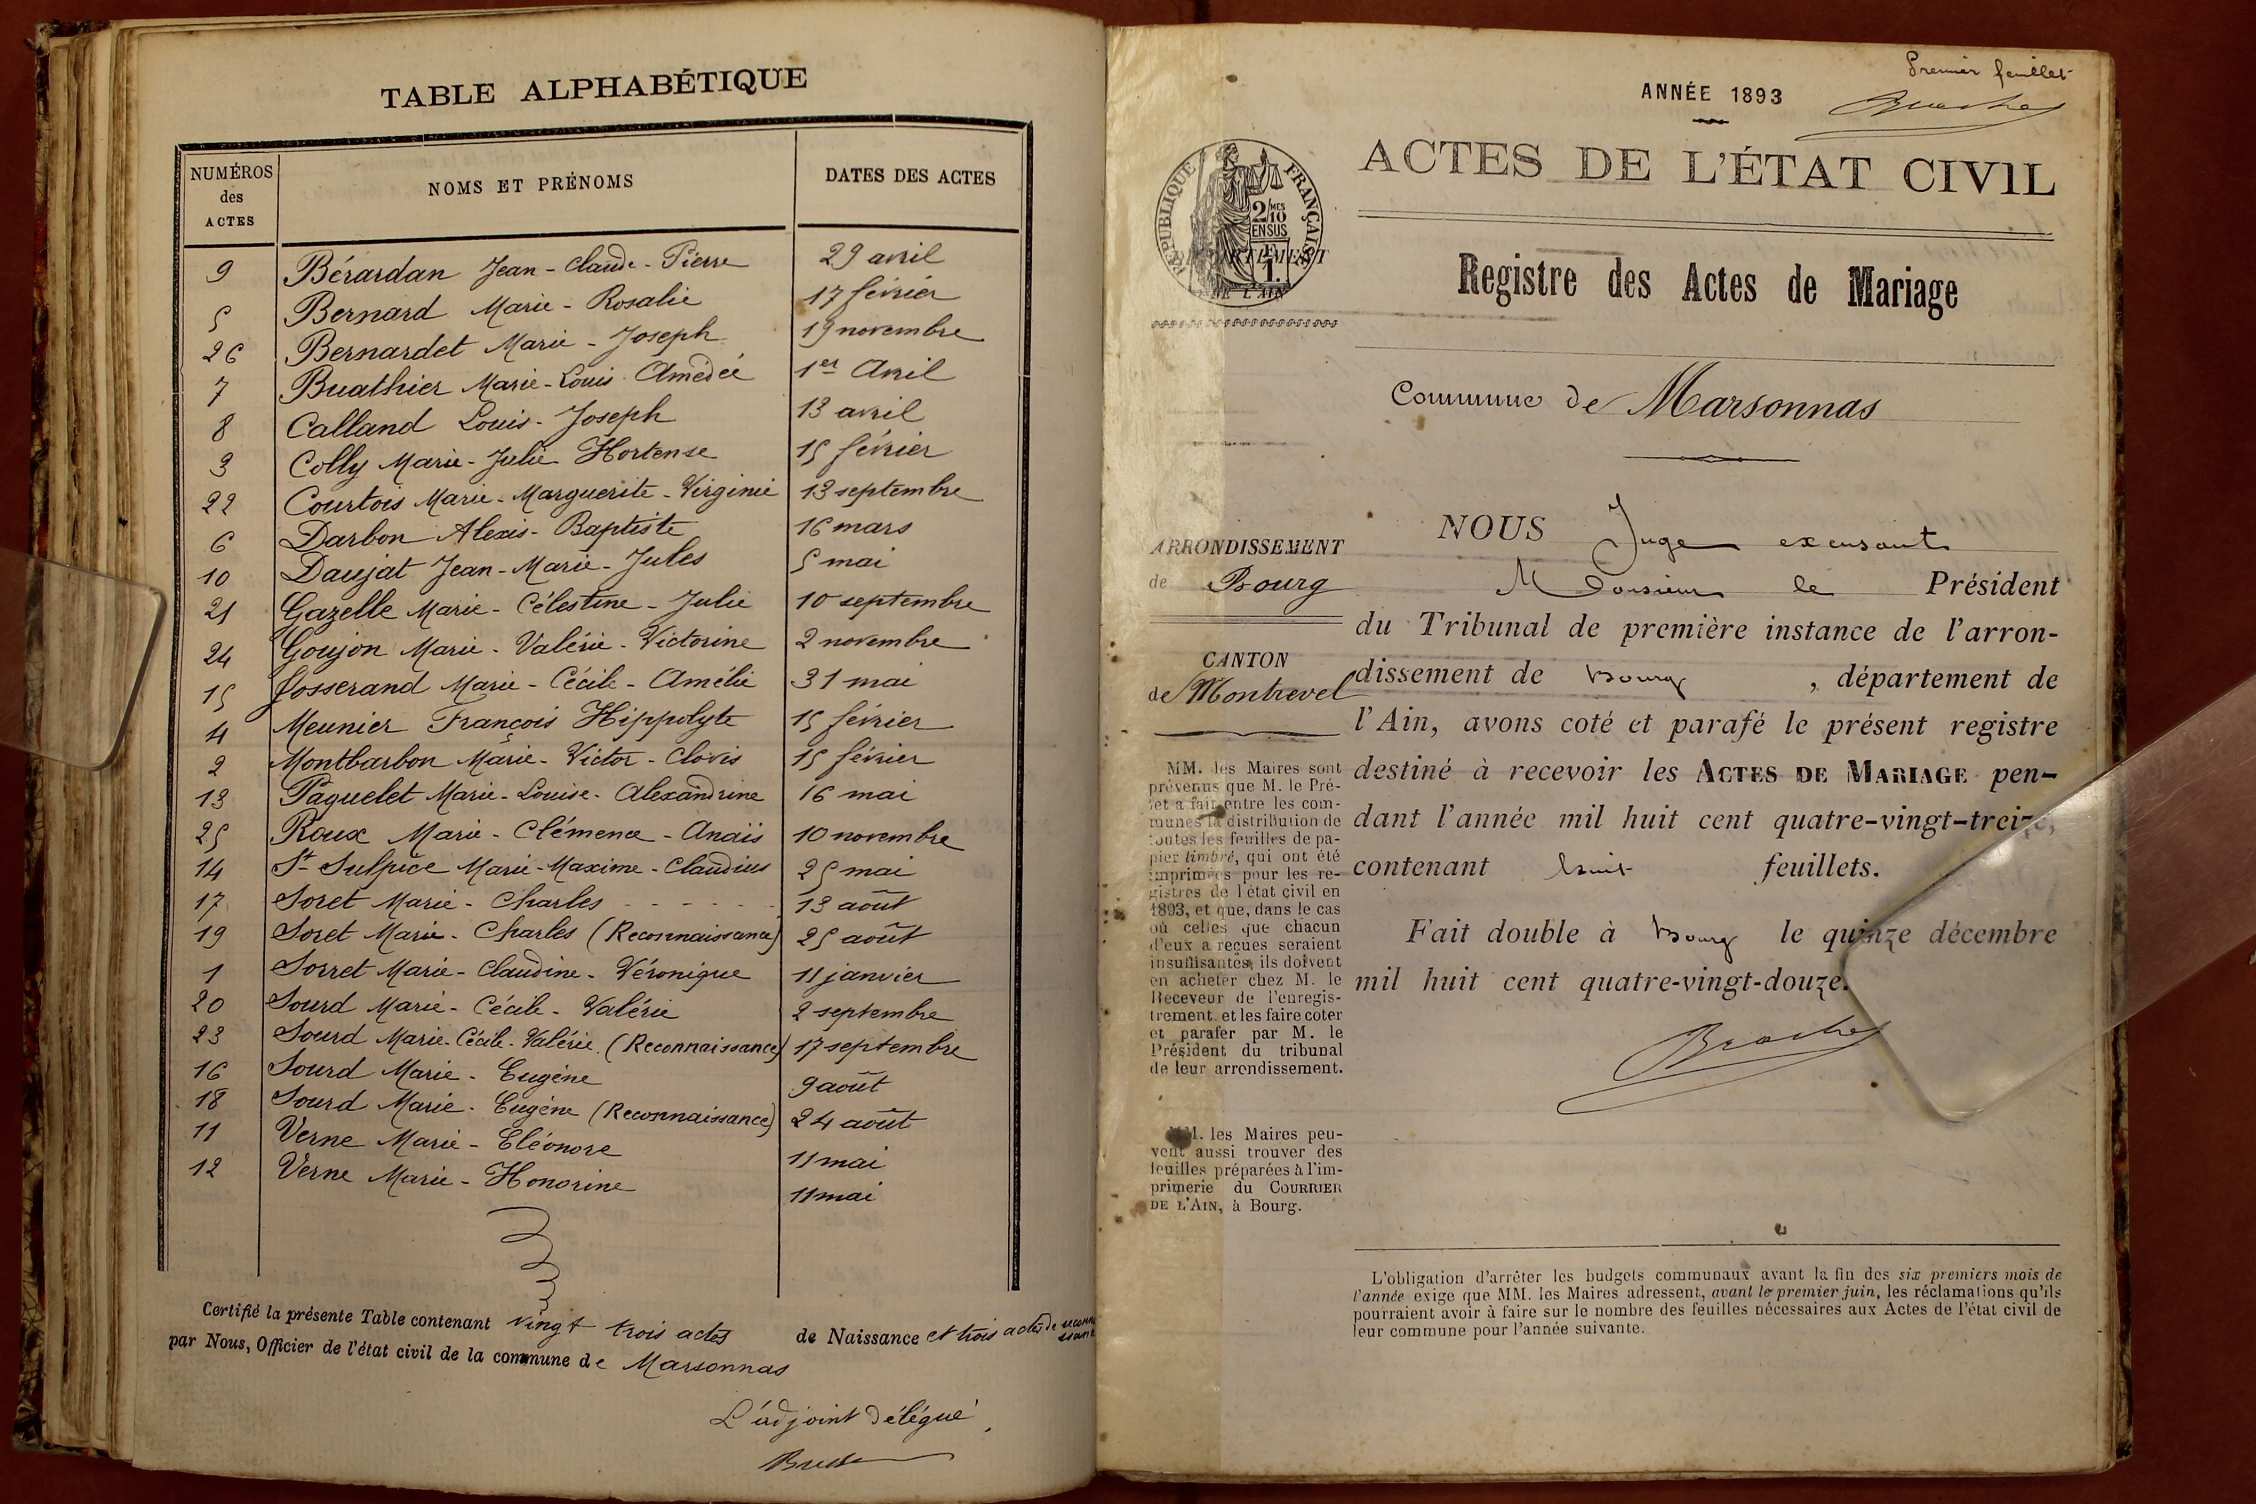 TABLE ALPHABÉTIQUE
NUMÉROS des ACTES NOMS ET PRÉNOMS DATES DES ACTES
9 Bérardan Jean-Claude-Pierre 29 avril
5 Bernard Marie-Rosalie 17 février
26 Bernardet Marie-Joseph 19 novembre
7 Buathier Marie-Louis Amédée 1er Avril
8 Calland Louis-Joseph 13 avril
3 Colly Marie-Julie Hortense 15 février
22 Courtois Marie-Marguerite-Virginie 13 septembre
6 Darbon Alexis-Baptiste 16 mars
10 Daujat Jean-Marie-Jules 5 mai
21 Gazelle Marie-Célestine-Julie 10 septembre
24 Goujon Marie-Valérie-Victorine 2 novembre
15 Josserand Marie-Cécile-Amélie 31 mai
4 Meunier François Hippolyte 15 février
2 Montbarbon Marie-Victor-Clovis 15 février
13 Paquelet Marie-Louise-Alexandrine 16 mai
25 Roux Marie-Clémence-Anaïs 10 novembre
14 St-Sulpice Marie-Maxime-Claudius 25 mai
17 Soret Marie-Charles - - - - - 13 août
19 Soret Marie-Charles (Reconnaissance) 25 août
1 Sorret Marie-Claudine-Véronique 11 janvier
20 Sourd Marie-Cécile-Valérie 2 septembre
23 Sourd Marie-Cécile-Valérie (Reconnaissance) 17 septembre
16 Sourd Marie-Eugène 9 août
18 Sourd Marie-Eugène (Reconnaissance) 24 août
11 Verne Marie-Eléonore 11 mai
12 Verne Marie-Honorine 11 mai
Certifié la présente Table contenant vingt trois actes de Naissance et trois actes de
par Nous, Officier de l'état civil de la commune de Marsonnas
L'adjoint délégué
Premier feuillet
ANNÉE 1893
ACTES DE L'ÉTAT CIVIL
RÉPUBLIQUE FRANÇAISE
2/10 MES
EN SUS
1.
DÉPARTEMENT
DE L'AIN
Registre des Actes de Mariage
Commune de Marsonnas
ARRONDISSEMENT
de Bourg
CANTON
de Montrevel
MM. les Maires sont
prévenus que M. le Pré-
fet a fait entre les com-
munes la distribution de
toutes les feuilles de pa-
pier timbré, qui ont été
imprimées pour les re-
gistres de l'état civil en
1893, et que, dans le cas
où celles que chacun
d'eux a reçues seraient
insuffisantes, ils doivent
en acheter chez M. le
Receveur de l'enregis-
trement, et les faire coter
et parafer par M. le
Président du tribunal
de leur arrondissement.
MM. les Maires peu-
vent aussi trouver des
feuilles préparées à l'im-
primerie du COURRIER
DE L'AIN, à Bourg.
NOUS Juge excusant
Monsieur le Président
du Tribunal de première instance de l'arron-
dissement de Bourg, département de
l'Ain, avons coté et parafé le présent registre
destiné à recevoir les ACTES DE MARIAGE pen-
dant l'année mil huit cent quatre-vingt-treize,
contenant huit feuillets.
Fait double à Bourg le quinze décembre
mil huit cent quatre-vingt-douze.
L'obligation d'arrêter les budgets communaux avant la fin des six premiers mois de
l'année exige que MM. les Maires adressent, avant le premier juin, les réclamations qu'ils
pourraient avoir à faire sur le nombre des feuilles nécessaires aux Actes de l'état civil de
leur commune pour l'année suivante.